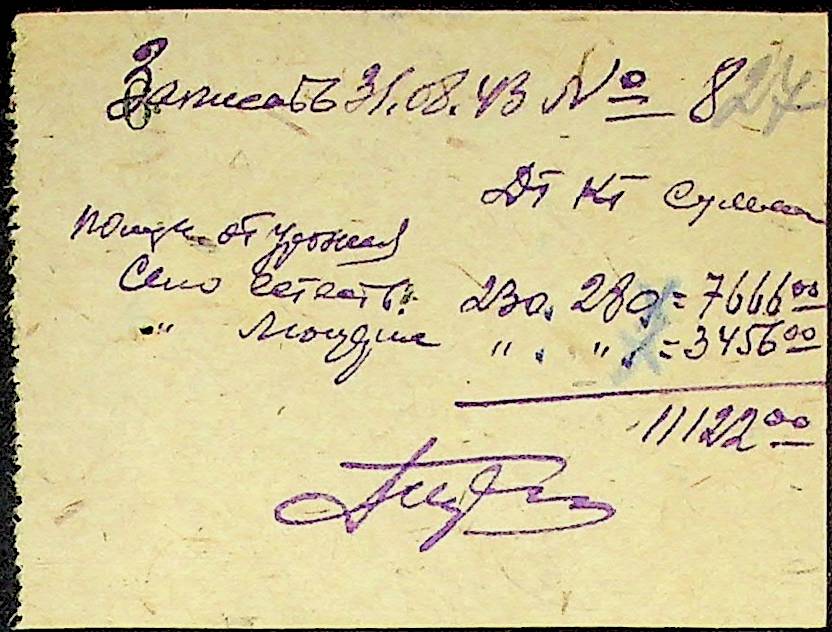 Записать 31.08.43 № 8 27
Дт Кт Сумма
получ. от урожая
Сено естеств. 230. 280 = 7666 00
" " . " = 3456 00
11122 00